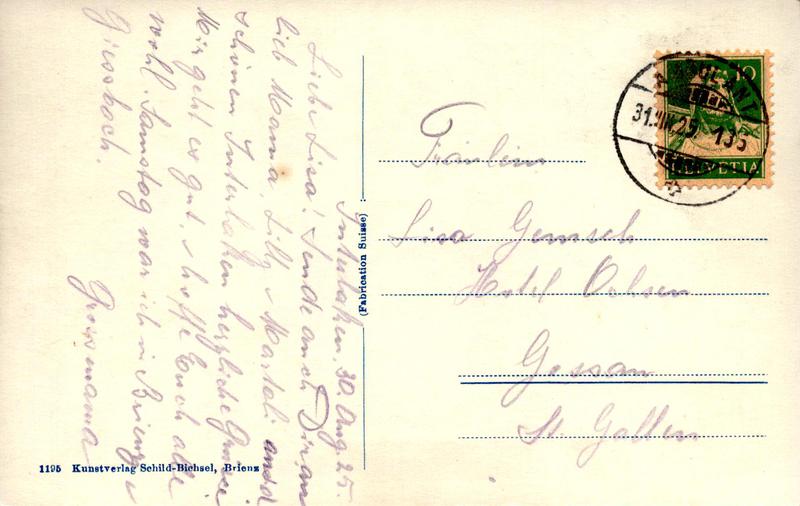 Interlaken, 30. Aug. 25.
Liebe Lisa! Sende auch Dir und
lieb Mama, Lilly & Marteli aus d
schönen Interlaken herzliche Grüsse
Mir geht es gut, & hoffe Euch alle
wohl. Samstag war ich in Brienz &
Giessbach.
Grossmama
(Fabrication Suisse)
1195 Kunstverlag Schild-Bichsel, Brienz
10
HELVETIA
AMBULANT
31.VIII.25. 135
Fräulein
Lisa Gemsch
Hotel Ochsen
Gossau
St. Gallen